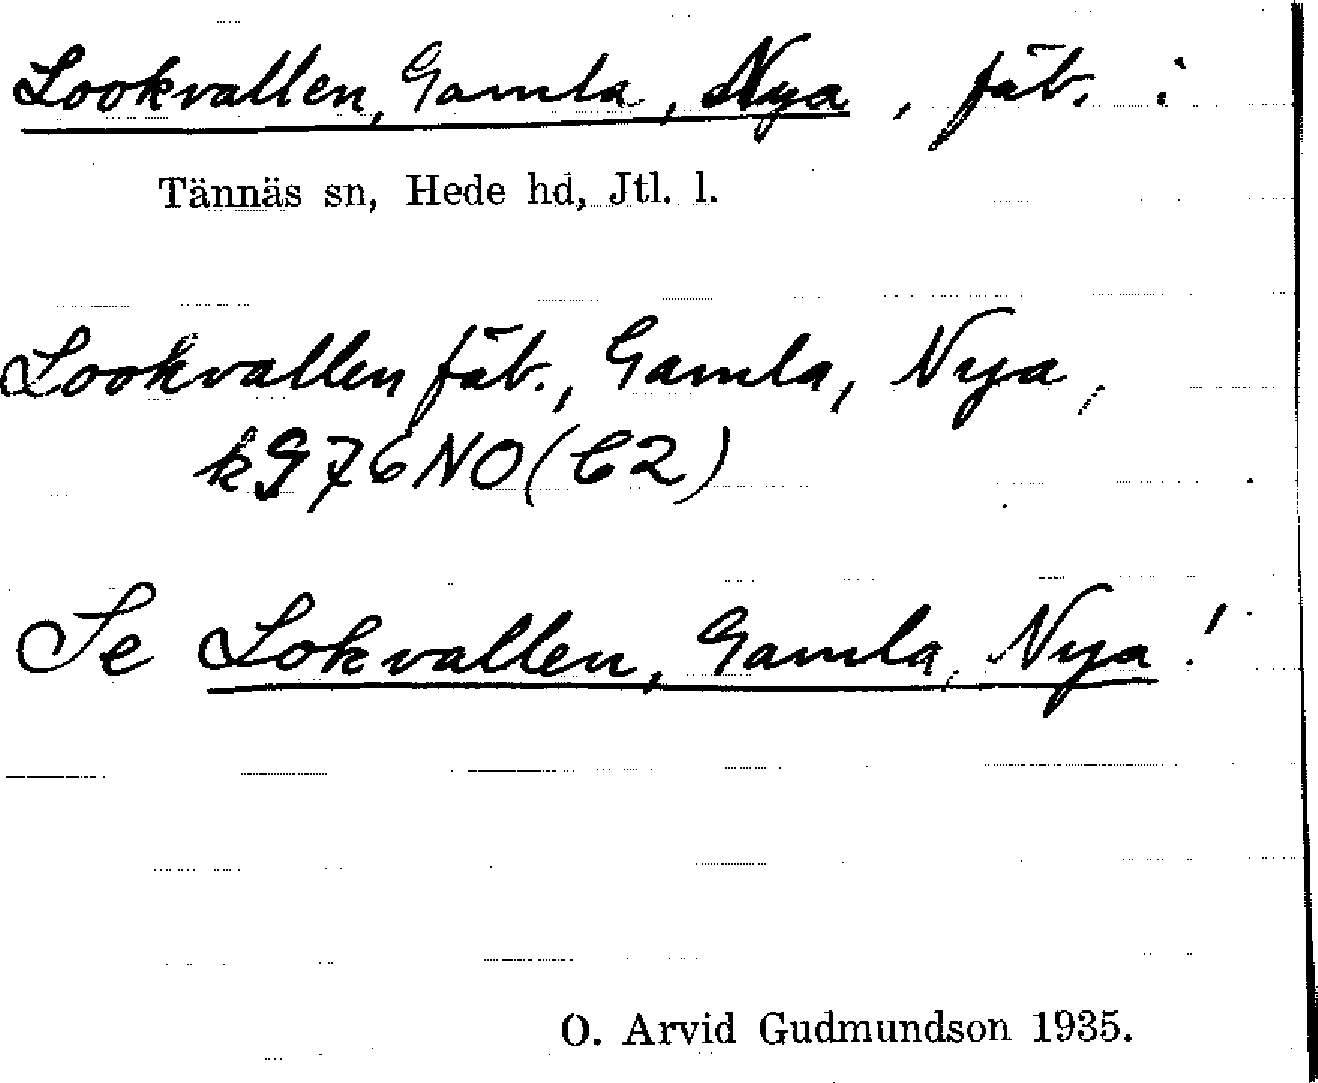 Lookvallen, Gamla, Nya, fäb. i
Tännäs sn, Hede hd, Jtl. l.
Lookvallen fäb., Gamla, Nya,
kG76NO(C2)
Se Lokvallen, Gamla, Nya!
O. Arvid Gudmundson 1935.